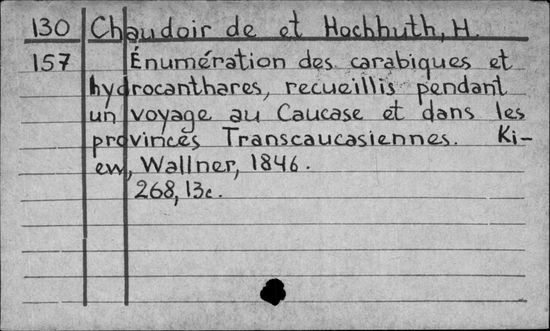 130 Chaudoir de et Hochhuth, H.
157 Énumération des carabiques et
hydrocanthares, recueillis pendant
un voyage au Caucase et dans les
provinces Transcaucasiennes. Ki-
ew, Wallner, 1846.
268, 13c.